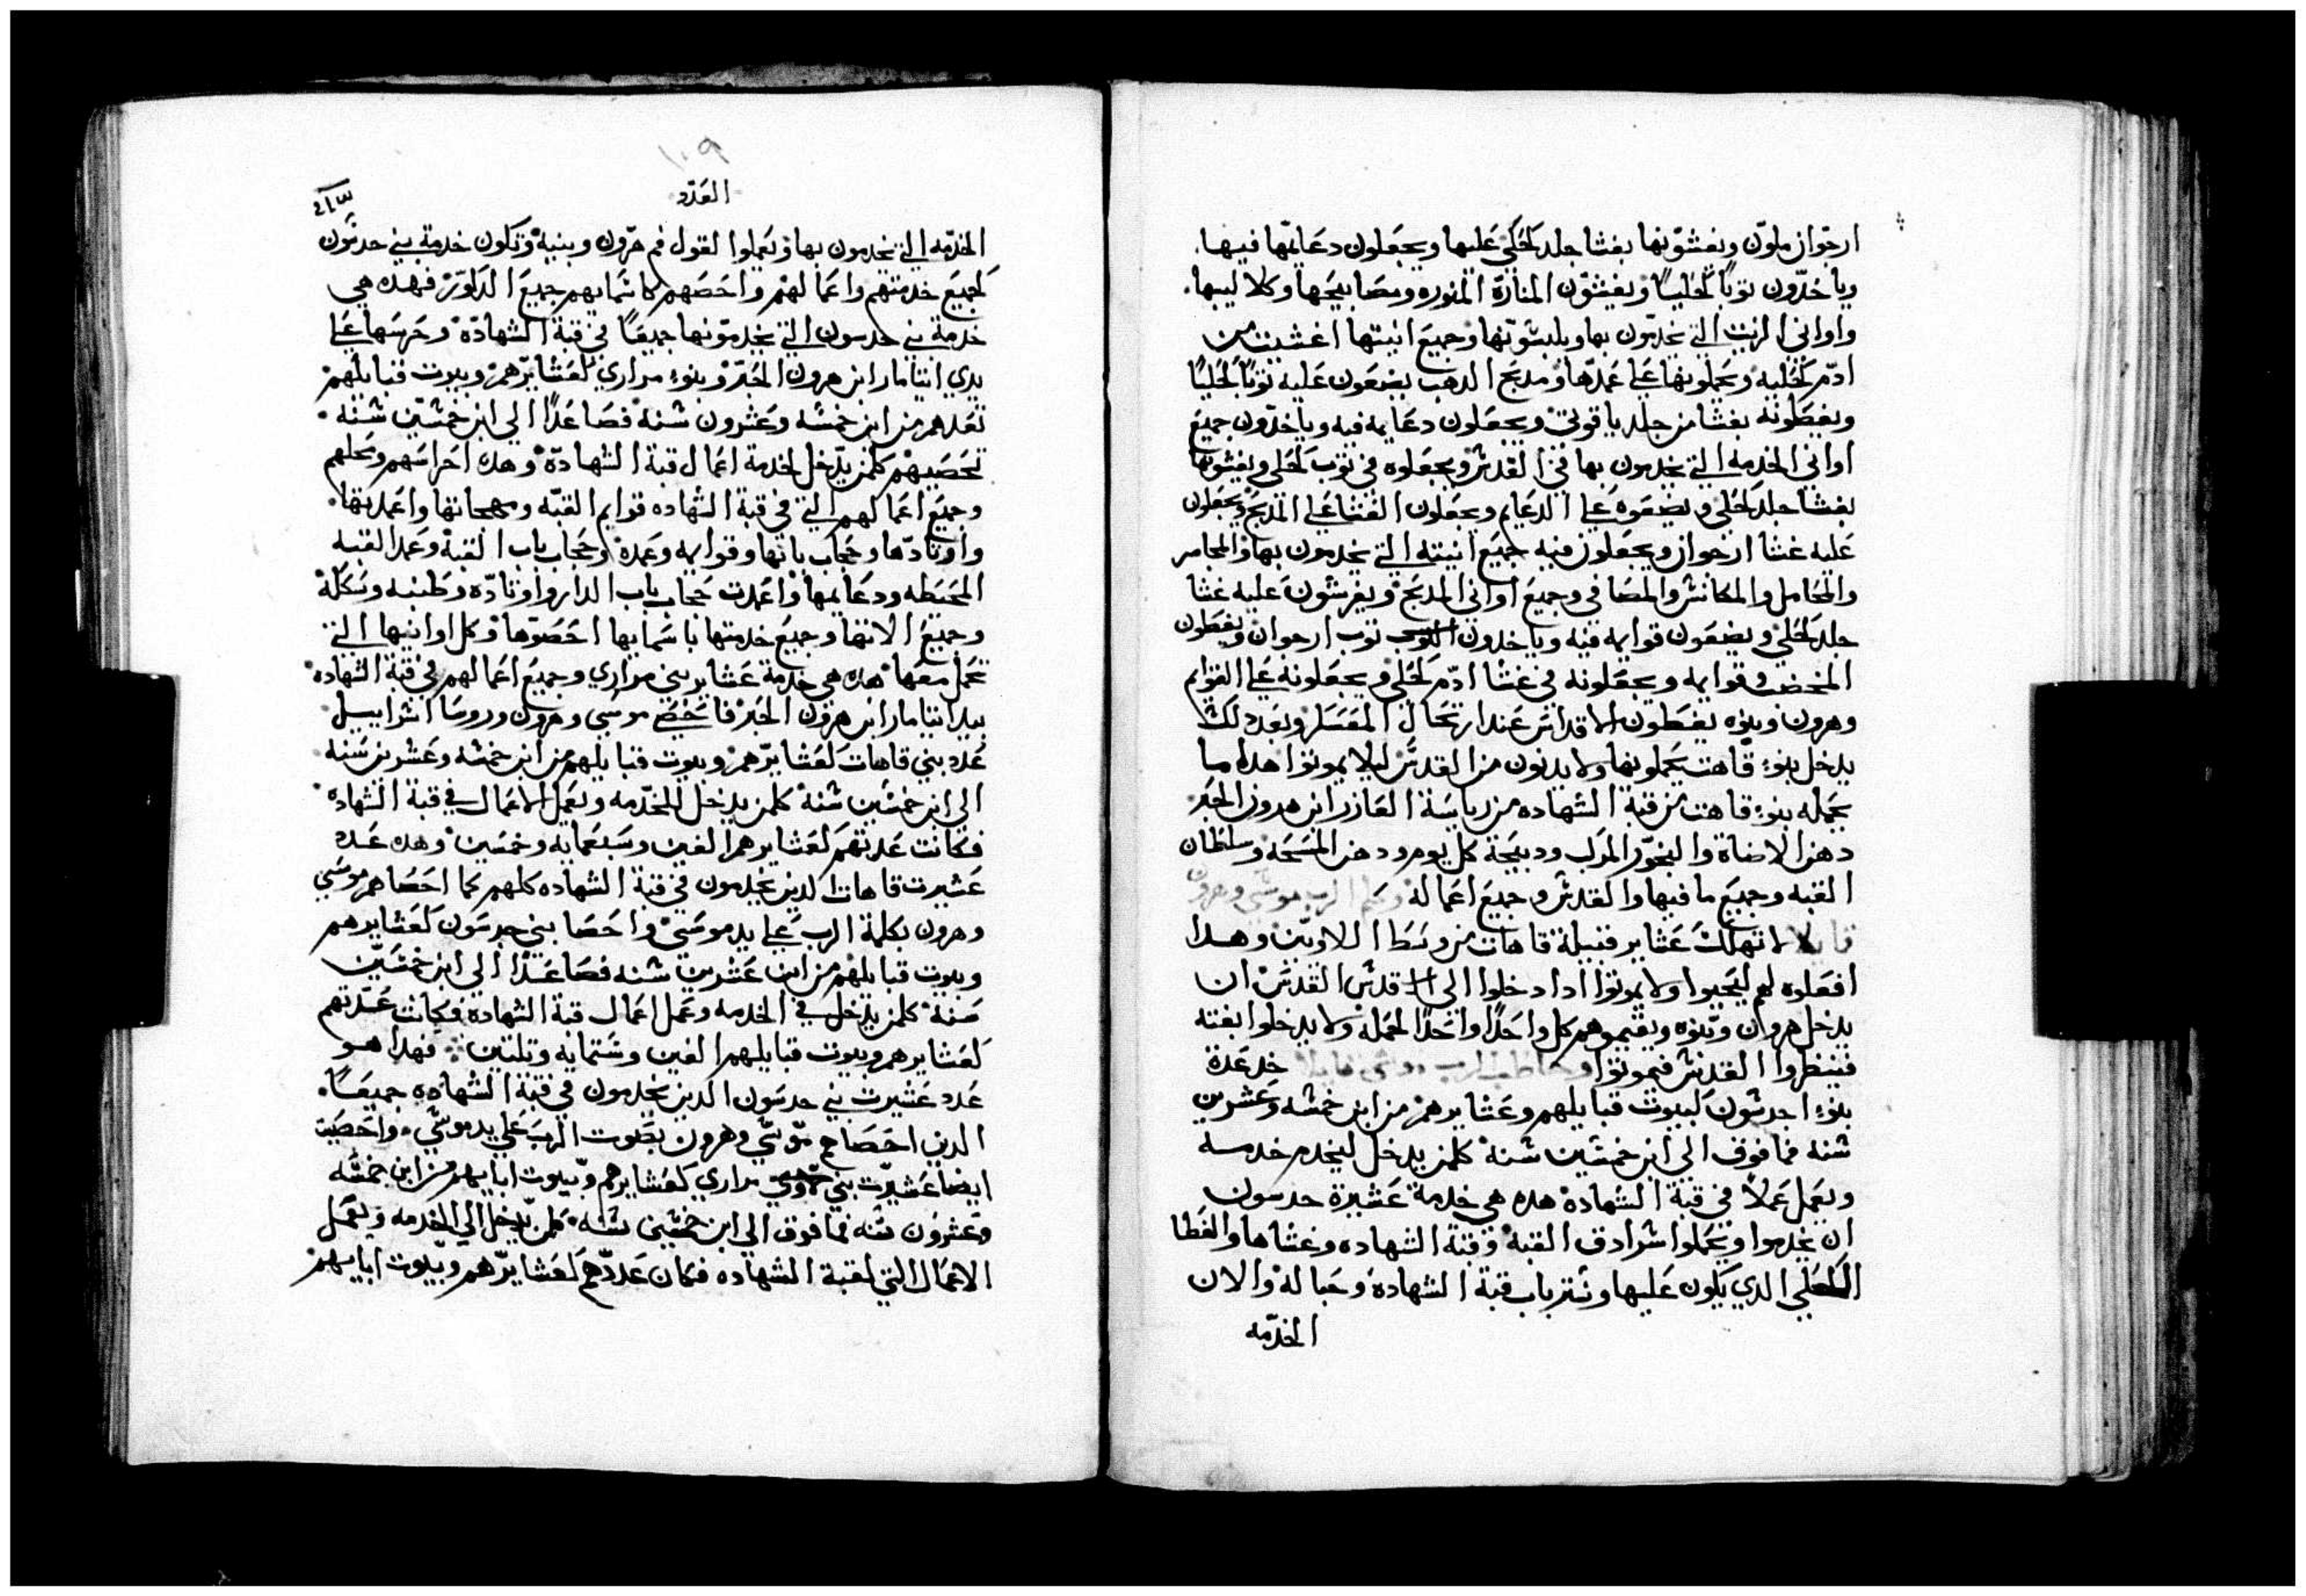 ارجوان ملون ويغشونها بغشا جلد كحلي عليها ويجعلون دعايمها فيها.
وياخدون توبًا كحليًا ويغشون المنارة المنوره ومصابيحها وكلاليبها.
واواني الزيت التي يخدمون بها ويلبسونها وجميع انيتها اغشيت من
ادم كحليه ويحملونها على عمدها ومدبح الدهب يضعون عليه توبًا كحليًا
ويغطونه بغشا من جلد ياقوتي ويجعلون دعايمه فيه وياخدون جميع
اواني الخدمه التي يخدمون بها في القدس ويجعلوه في توب كحلي ويغشوها
بغشا جلد كحلي ويضعوه على الدعايم ويجعلون الغشا على المدبح ويجعلون
عليه غشا ارجوان ويجعلون فيه جميع انيته التي يخدمون بها والمجامر
والمحامل والمكانس والمصافي وجميع اواني المدبح ويفرشون عليه غشا
جلد كحلي ويضعون قوايمه فيه وياخدون توب ارجوان ويغطون
المخضب وقوايمه ويجعلونه في غشا ادم كحلي ويجعلونه على القوايم
وهرون وبنوه يغطون الاقداس عند ارتحال المعسكر وبعد دلك
يدخل بنوء قاهت يحملونها ولا يدنون من القدس ليلا يموتوا هدا ما
يحمله بنوء قاهت من قبة الشهاده من رياسة العازر ابن هرون الحبر
دهن الاضاة والبخور المركب ودبيحة كل يوم ودهن المسحه وسلطان
القبه وجميع ما فيها والقدس وجميع اعماله وكلم الرب موسي وهرون
قايلا لا تهلك عشاير قبيلة قاهات من وسط اللاويين وهدا
افعلوه لهم ليحيوا ولا يموتوا ادا دخلوا الي قدس القدس ان
يدخل هرون وبنوه ويقيموهم كل واحدًا واحدًا لحمله ولا يدخلوا بغته
فينظروا القدس فيموتوا وخاطب الرب موسى قايلا خد عدة
بنوء اجدشون لبيوت قبايلهم وعشايرهم من ابن خمسه وعشرين
سنه فما فوق الي ابن خمسين سنه كلمن يدخل ليخدم خدمه
ويعمل عملًا في قبة الشهاده هده هي خدمة عشيرة جدسون
ان يخدموا ويحملوا شرادق القبه وقبة الشهاده وغشاها والغطا
الكحلي الدي يكون عليها وستر باب قبة الشهاده وحباله والالات
الخدمه
١٠٩
العدد
الخدمه التي يخدمون بها ويعملوا لقول فم هرون وبنيه وتكون خدمة بني جدشون
لجميع خدمتهم واعمالهم واحصهم كاسمايهم جميع الدكور فهده هي
خدمة بني جدسون التي يخدمونها جميعًا في قبة الشهاده وحرسها على
يدي ايتامار ابن هرون الحبر وبنوء مراري لعشايرهم وبيوت قبايلهم
تعدهم من ابن خمسه وعشرون سنه فصاعدًا الي ابن خمسين سنه
تحصيهم كلمن يدخل لخدمة اعمال قبة الشهادة وهده احراسهم وحملهم
وجميع اعمالهم التي في قبة الشهاده قوايم القبه ومهجاتها واعمدتها.
واوتادها وحجاب بابها وقوايمه وعمده وحجاب باب القبه وعمد القبه
المحيطه ودعايمها واعمدت حجاب باب الدار واوتاده وطنبه وسككه
وجميع الاتها وجميع خدمتها باسمايها احصوها وكل اوانيها التي
تحمل معها هده هي خدمة عشاير بني مراري وجميع اعمالهم في قبة الشهاده
بيد ايتامار ابن هرون الحبر فاحصي موسي وهرون وروسا اسراييل
عدد بني قاهات لعشايرهم وبيوت قبايلهم من ابن خمسه وعشرين سنه
الي ابن خمسين سنه كلمن يدخل للخدمه ويعمل الاعمال في قبة الشهاده
فكانت عدتهم لعشايرهم الفين وسبعمايه وخمسين وهده عدد
عشيرت قاهات الدين يخدمون في قبة الشهاده كلهم كما احصاهم موسي
وهرون بكلمة الرب على يد موسي واحصا بني جدسون لعشايرهم
وبيوت قبايلهم من ابن عشرين سنه فصاعدًا الي ابن خمسين
سنه كلمن يدخل في الخدمه وعمل اعمال قبة الشهاده فكانت عدتهم
لعشايرهم وبيوت قبايلهم الفين وستمايه وتلتين فهدا هو
عدد عشيرت بني جدسون الدين يخدمون في قبة الشهاده جميعًا.
الدين احصاهم موسي وهرون بصوت الرب على يد موسي. واحصيت
ايضا عشيرت بني مراري لعشايرهم وبيوت ابايهم من ابن خمسه
وعشرون سنه فما فوق الي ابن خمسين سنه كلمن يدخل الي الخدمه ويعمل
الاعمال التي لقبة الشهاده فكان عددهم لعشايرهم وبيوت ابايهم